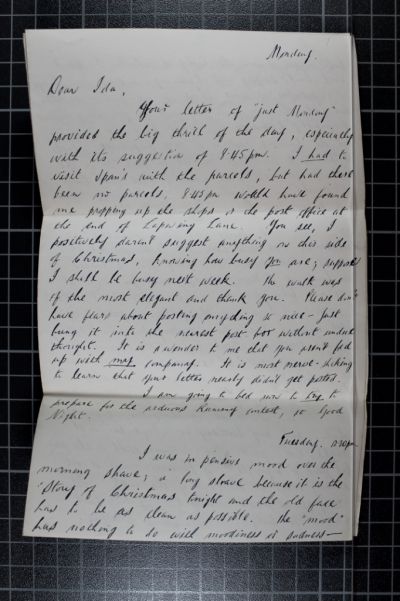 Monday.
Dear Ida,
Your letter of "just Monday"
provided the big thrill of the day, especially
with its suggestion of 8.45pm. I had to
visit with the parcels, but had there
been no parcels, 8.45pm would have found
me propping up the shops & the post office at
the end of Lapwing Lane. You see, I
positively daren't suggest anything on this side
of Christmas, knowing how busy you are; suppose
I shall be busy next week. The walk was
of the most elegant and thank you. Please don't
have fears about posting anything so nice - Just
bung it into the nearest post-box without undue
thought. It is a wonder to me that you aren't fed
up with my company. It is most nerve-
to learn that your letter nearly didn't get posted.
I am going to bed now to try to
prepare for the arduous contest, so Good
Night.
Tuesday.
I was in pensive mood over the
morning shave; a long shave because it is the
"Story of Christmas tonight and the old face
has to be as clean as possible. The "mood"
has nothing to do with moodiness or sadness—